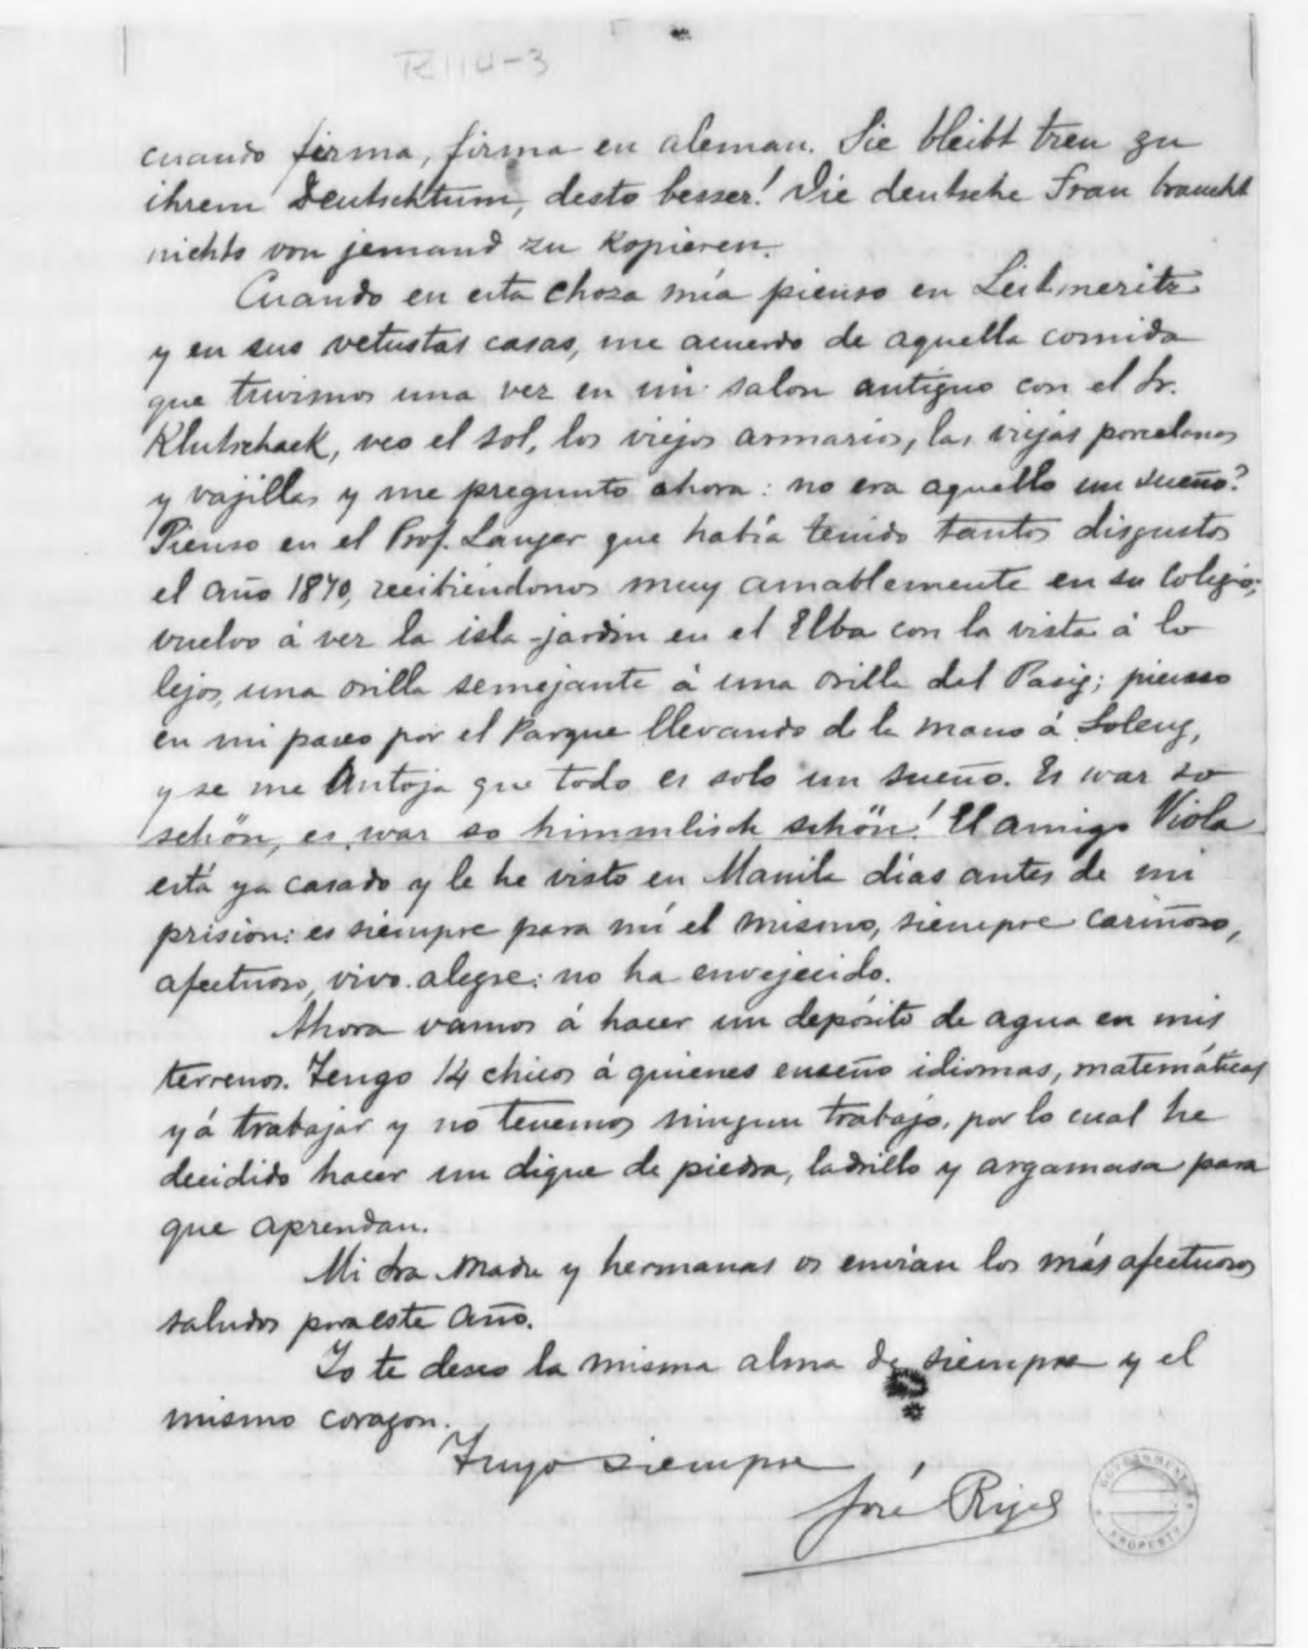 R114-3
cuando firma, firma en aleman. Sie bleibt treu zu
ihrem Deutschtum, desto besser! Die deutsche Frau braucht
nichts von jemand zu kopieren.
Cuando en esta choza mía pienso en Leitmeritz
y en sus vetustas casas, me acuerdo de aquella comida
que tuvimos una vez en un salon antiguo con el Dr.
Klutschack, veo el sol, los viejos armarios, las viejas porcelanas
y vajillas y me pregunto ahora: no era aquello un sueño?
Pienso en el Prof. Langer que había tenido tantos disgustos
el año 1870, recibiéndonos muy amablemente en su Colegio;
vuelvo á ver la isla-jardin en el Elba con la vista á lo
lejos, una orilla semejante á una orilla del Pasig; pienso
en mi paseo por el Parque llevando de la mano á Loleng,
y se me antoja que todo es solo un sueño. Es war so
schön, es war so himmlisch schön! El amigo Viola
está ya casado y le he visto en Manila dias antes de mi
prision: es siempre para mí el mismo, siempre cariñoso,
afectuoso, vivo. alegre: no ha envejecido.
Ahora vamos á hacer un depósito de agua en mis
terrenos. Tengo 14 chicos á quienes enseño idiomas, matemáticas
y á trabajar y no tenemos ningun trabajo, por lo cual he
decidido hacer un dique de piedra, ladrillo y argamasa para
que aprendan.
Mi Sra Madre y hermanas os envian los más afectuosos
saludos para este año.
Yo te deseo la misma alma de siempre y el
mismo corazon.
Tuyo siempre
José Rizal
GOVERNMENT
PROPERTY